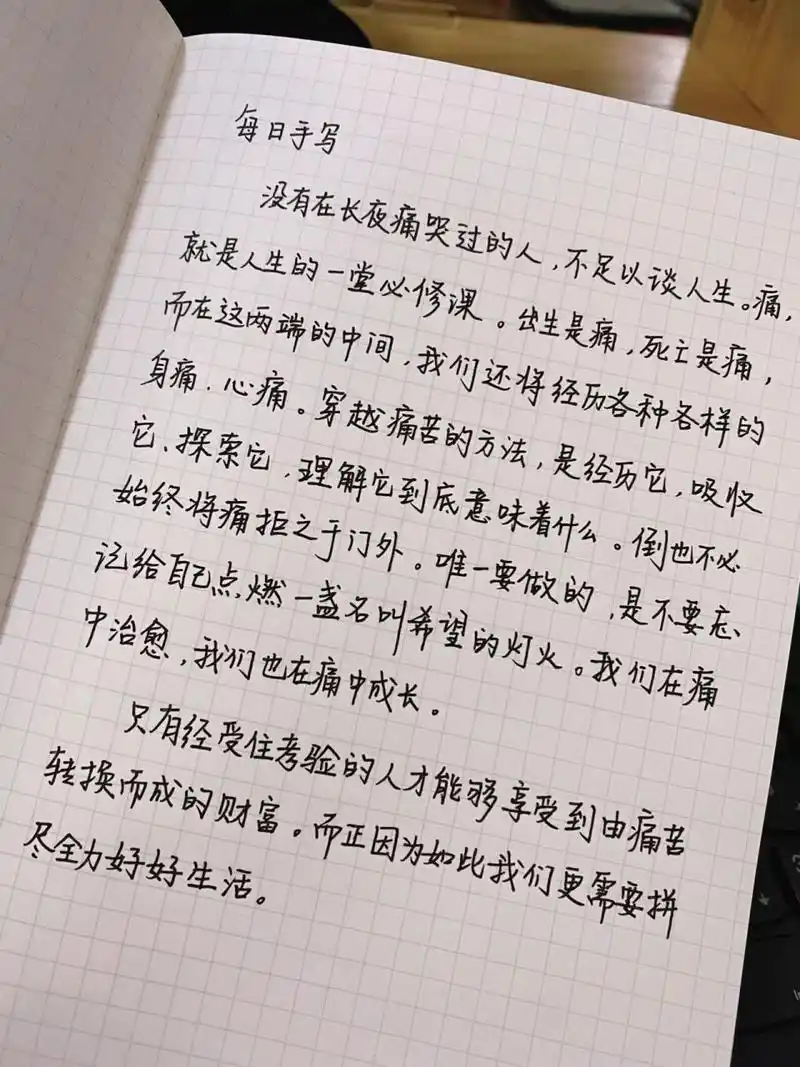 每日手写
没有在长夜痛哭过的人，不足以谈人生。痛，
就是人生的一堂必修课。出生是痛，死亡是痛，
而在这两端的中间，我们还将经历各种各样的
身痛、心痛。穿越痛苦的方法，是经历它，吸收
它、探索它，理解它到底意味着什么。倒也不必
始终将痛拒之于门外。唯一要做的，是不要忘
记给自己点燃一盏名叫希望的灯火。我们在痛
中治愈，我们也在痛中成长。
只有经受住考验的人才能够享受到由痛苦
转换而成的财富。而正因为如此我们更需要拼
尽全力好好生活。